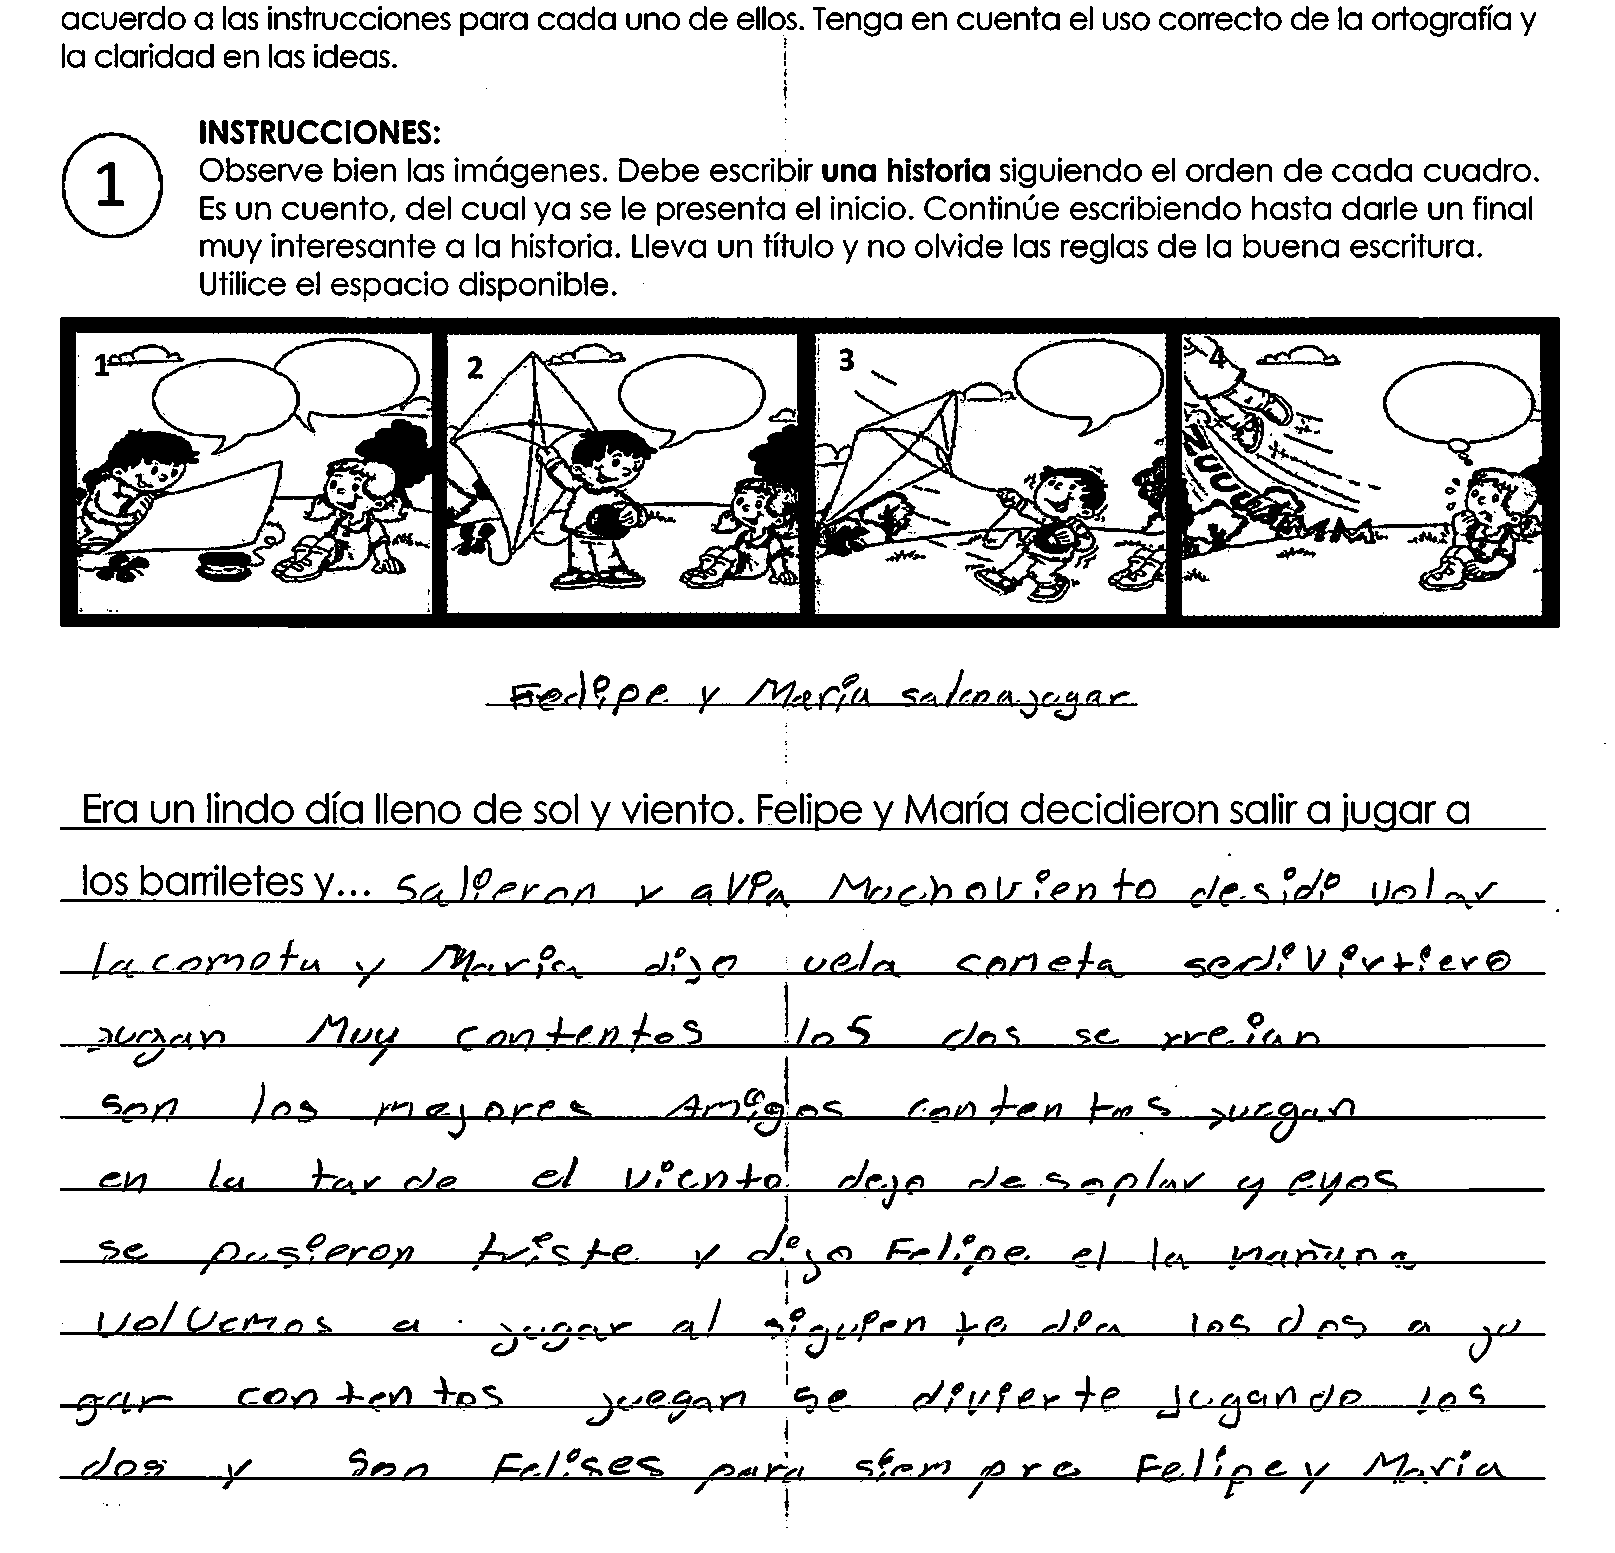 acuerdo a las instrucciones para cada uno de ellos. Tenga en cuenta el uso correcto de la ortografía y
la claridad en las ideas.
1
INSTRUCCIONES:
Observe bien las imágenes. Debe escribir una historia siguiendo el orden de cada cuadro.
Es un cuento, del cual ya se le presenta el inicio. Continúe escribiendo hasta darle un final
muy interesante a la historia. Lleva un título y no olvide las reglas de la buena escritura.
Utilice el espacio disponible.
1 2 3 4
y María
Era un lindo día lleno de sol y viento. Felipe y María decidieron salir a jugar a
los barriletes y... salieron y avia Mucho viento desidi volar
la comota y María dijo vela cometa se divirtiero
jugan Muy contentos los dos se rreian
son los mejores Amigos contentos juegan
en la tarde el viento dejo de soplar y eyos
se pusieron triste y dijo Felipe el la mañana
volvemos a jugar al siguiente dia los dos a ju
gar contentos juegan se divierte jugando los
dos y son Felises para siempre Felipe y Maria